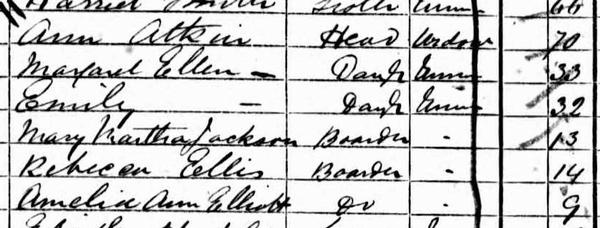 Harriet
Ann Atkin Head Widow 70
Margaret Ellen — Daugr Unm 33
Emily — Daugr Unm 32
Mary Martha Jackson Boarder - 13
Rebecca Ellis Boarder - 14
Amelia Ann Elliott Do - 9